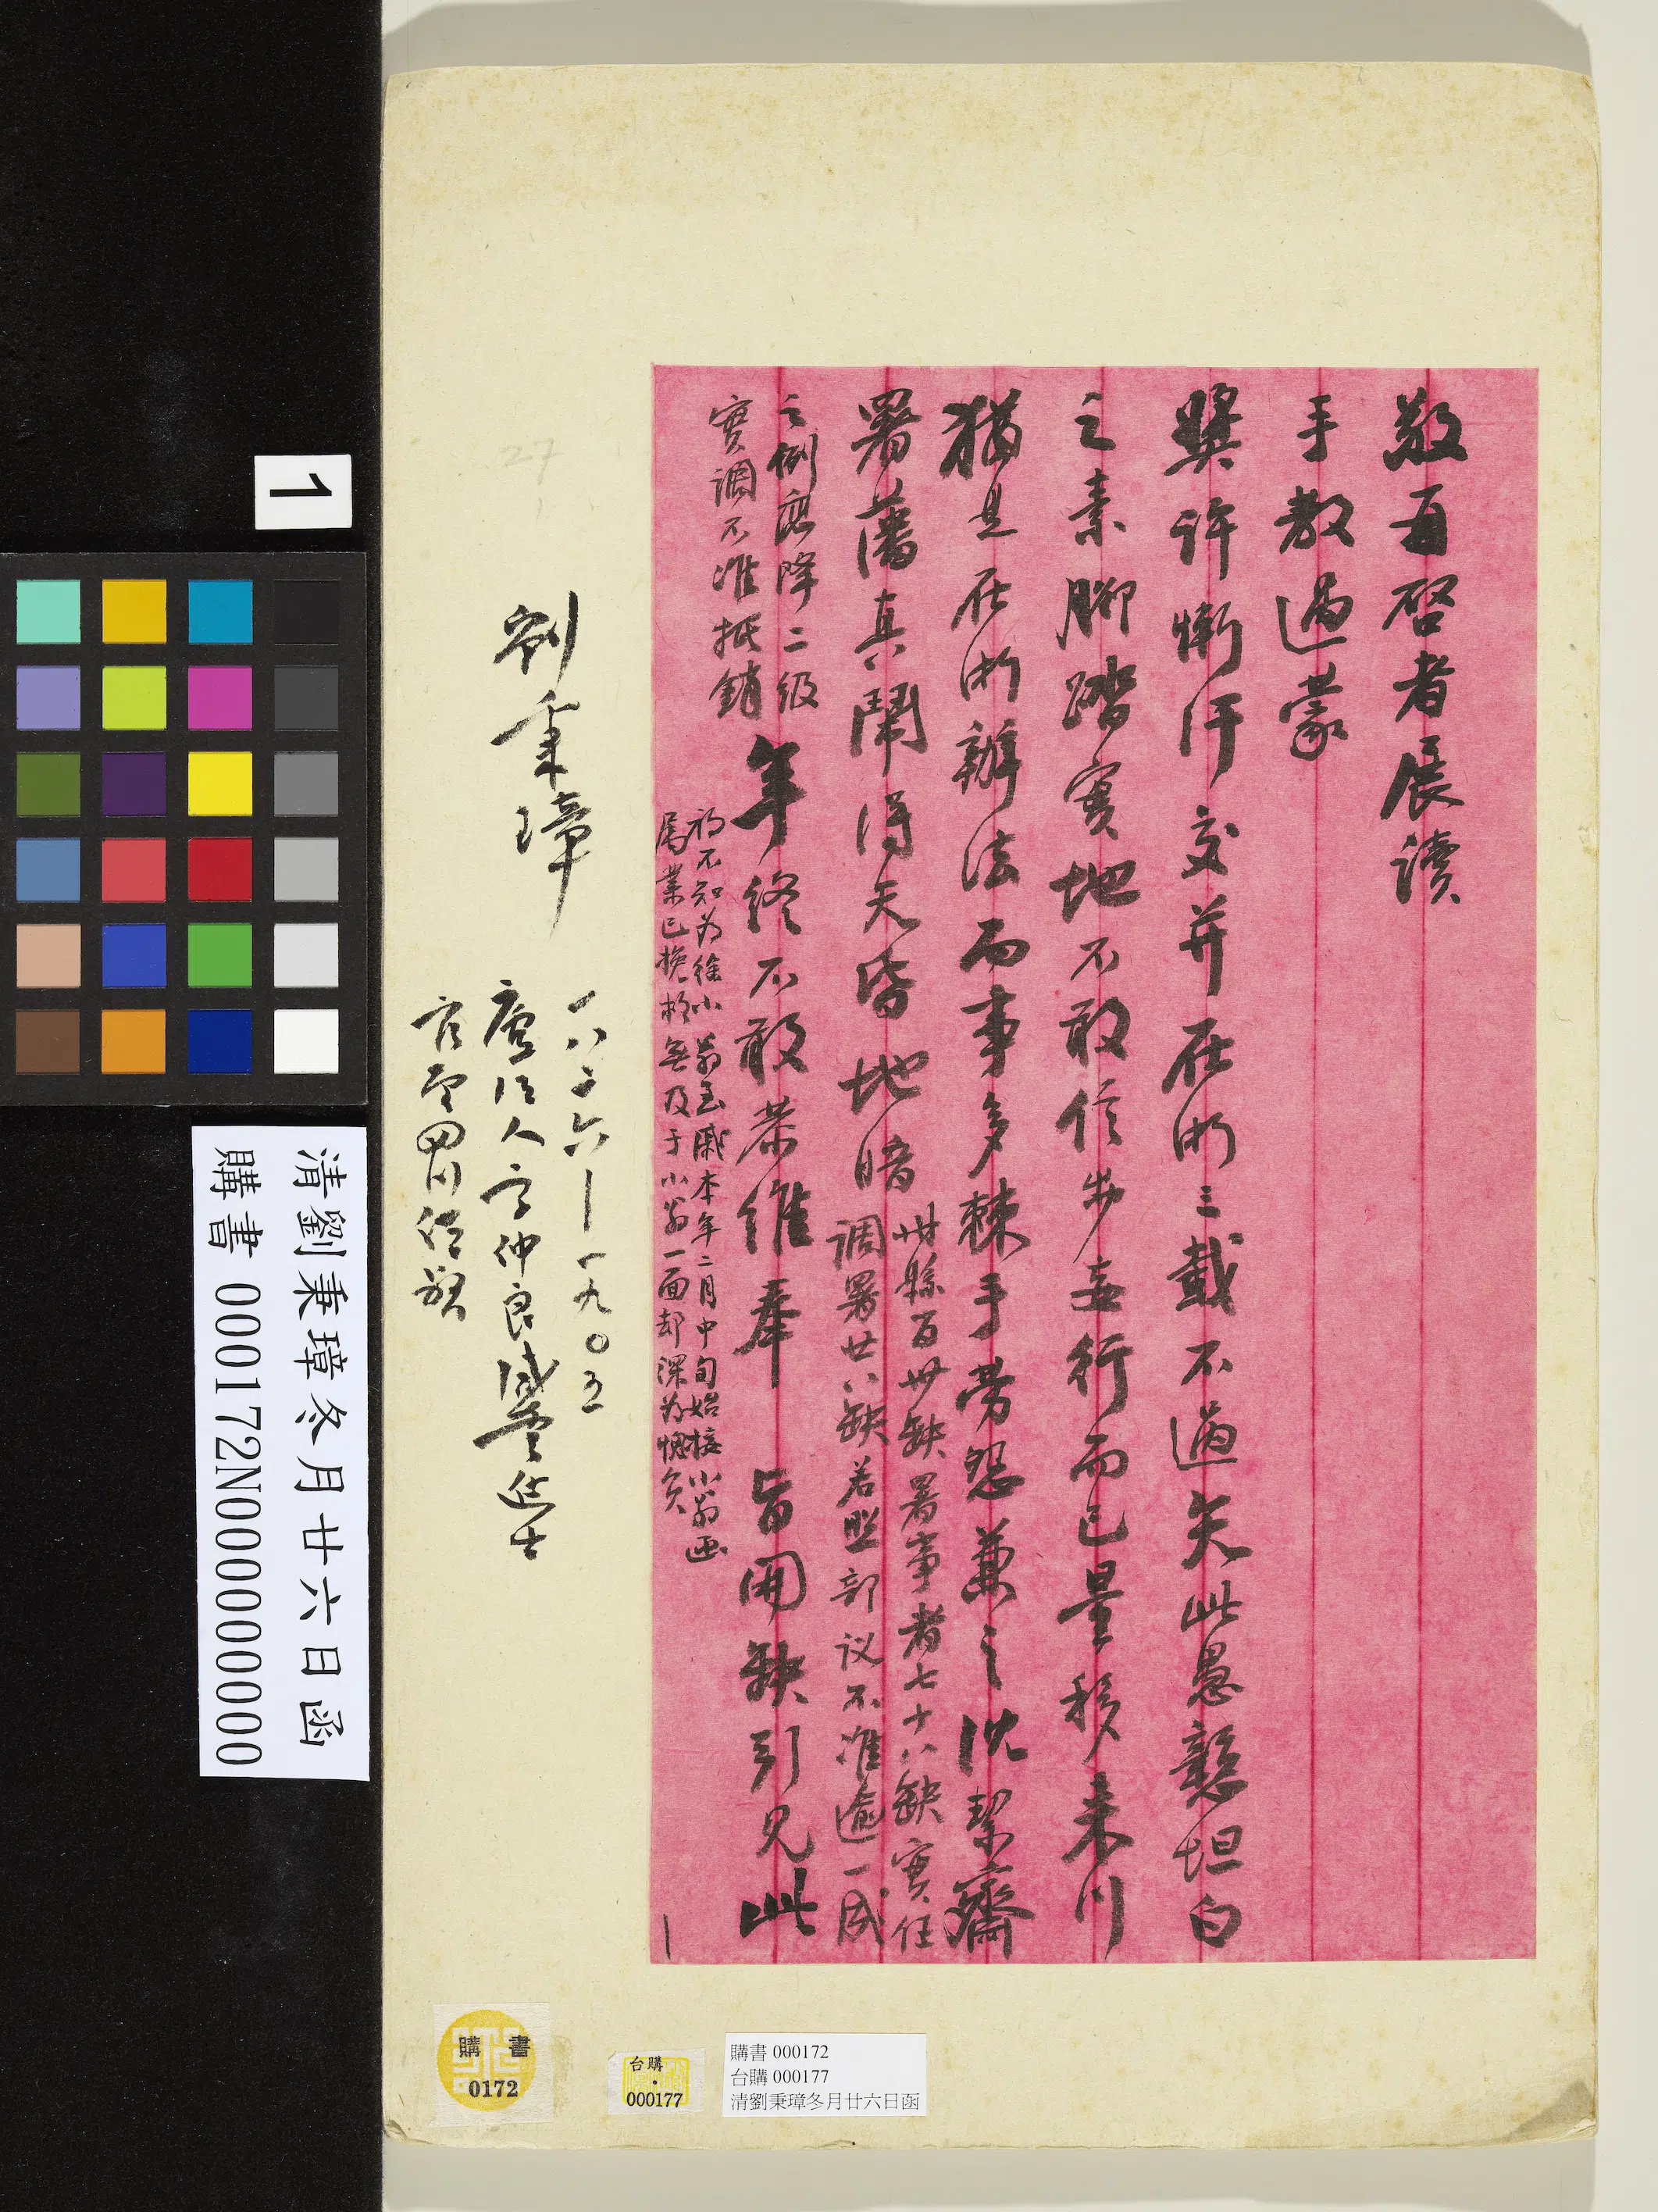 敬再啓者展讀
手教過蒙
獎許慚汗交并在浙三載不過矢此愚戇坦白
之素腳踏實地不敢信步妄行而已量移來川
猶是在浙辦法而事多棘手勞怨兼之沈絜齋
署藩真鬧得天昏地暗
州縣百卅缺署事者七十八缺實任
調署廿八缺若照部议不准逾一成
之例應降二級
實調不准抵銷
年終不敢恭維奉 旨開缺引見此
初不知為徐小翁至戚本年二月中旬始接小翁函
属業已挽救無及于小翁一面却深為愧負
劉秉璋
一八二六—一九〇五
廬江人字仲良咸豐進士
官至四川總督
27
1
清劉秉璋冬月廿六日函
購書 000172N000000000
購書
0172
台購
000177
購書 000172
台購 000177
清劉秉璋冬月廿六日函